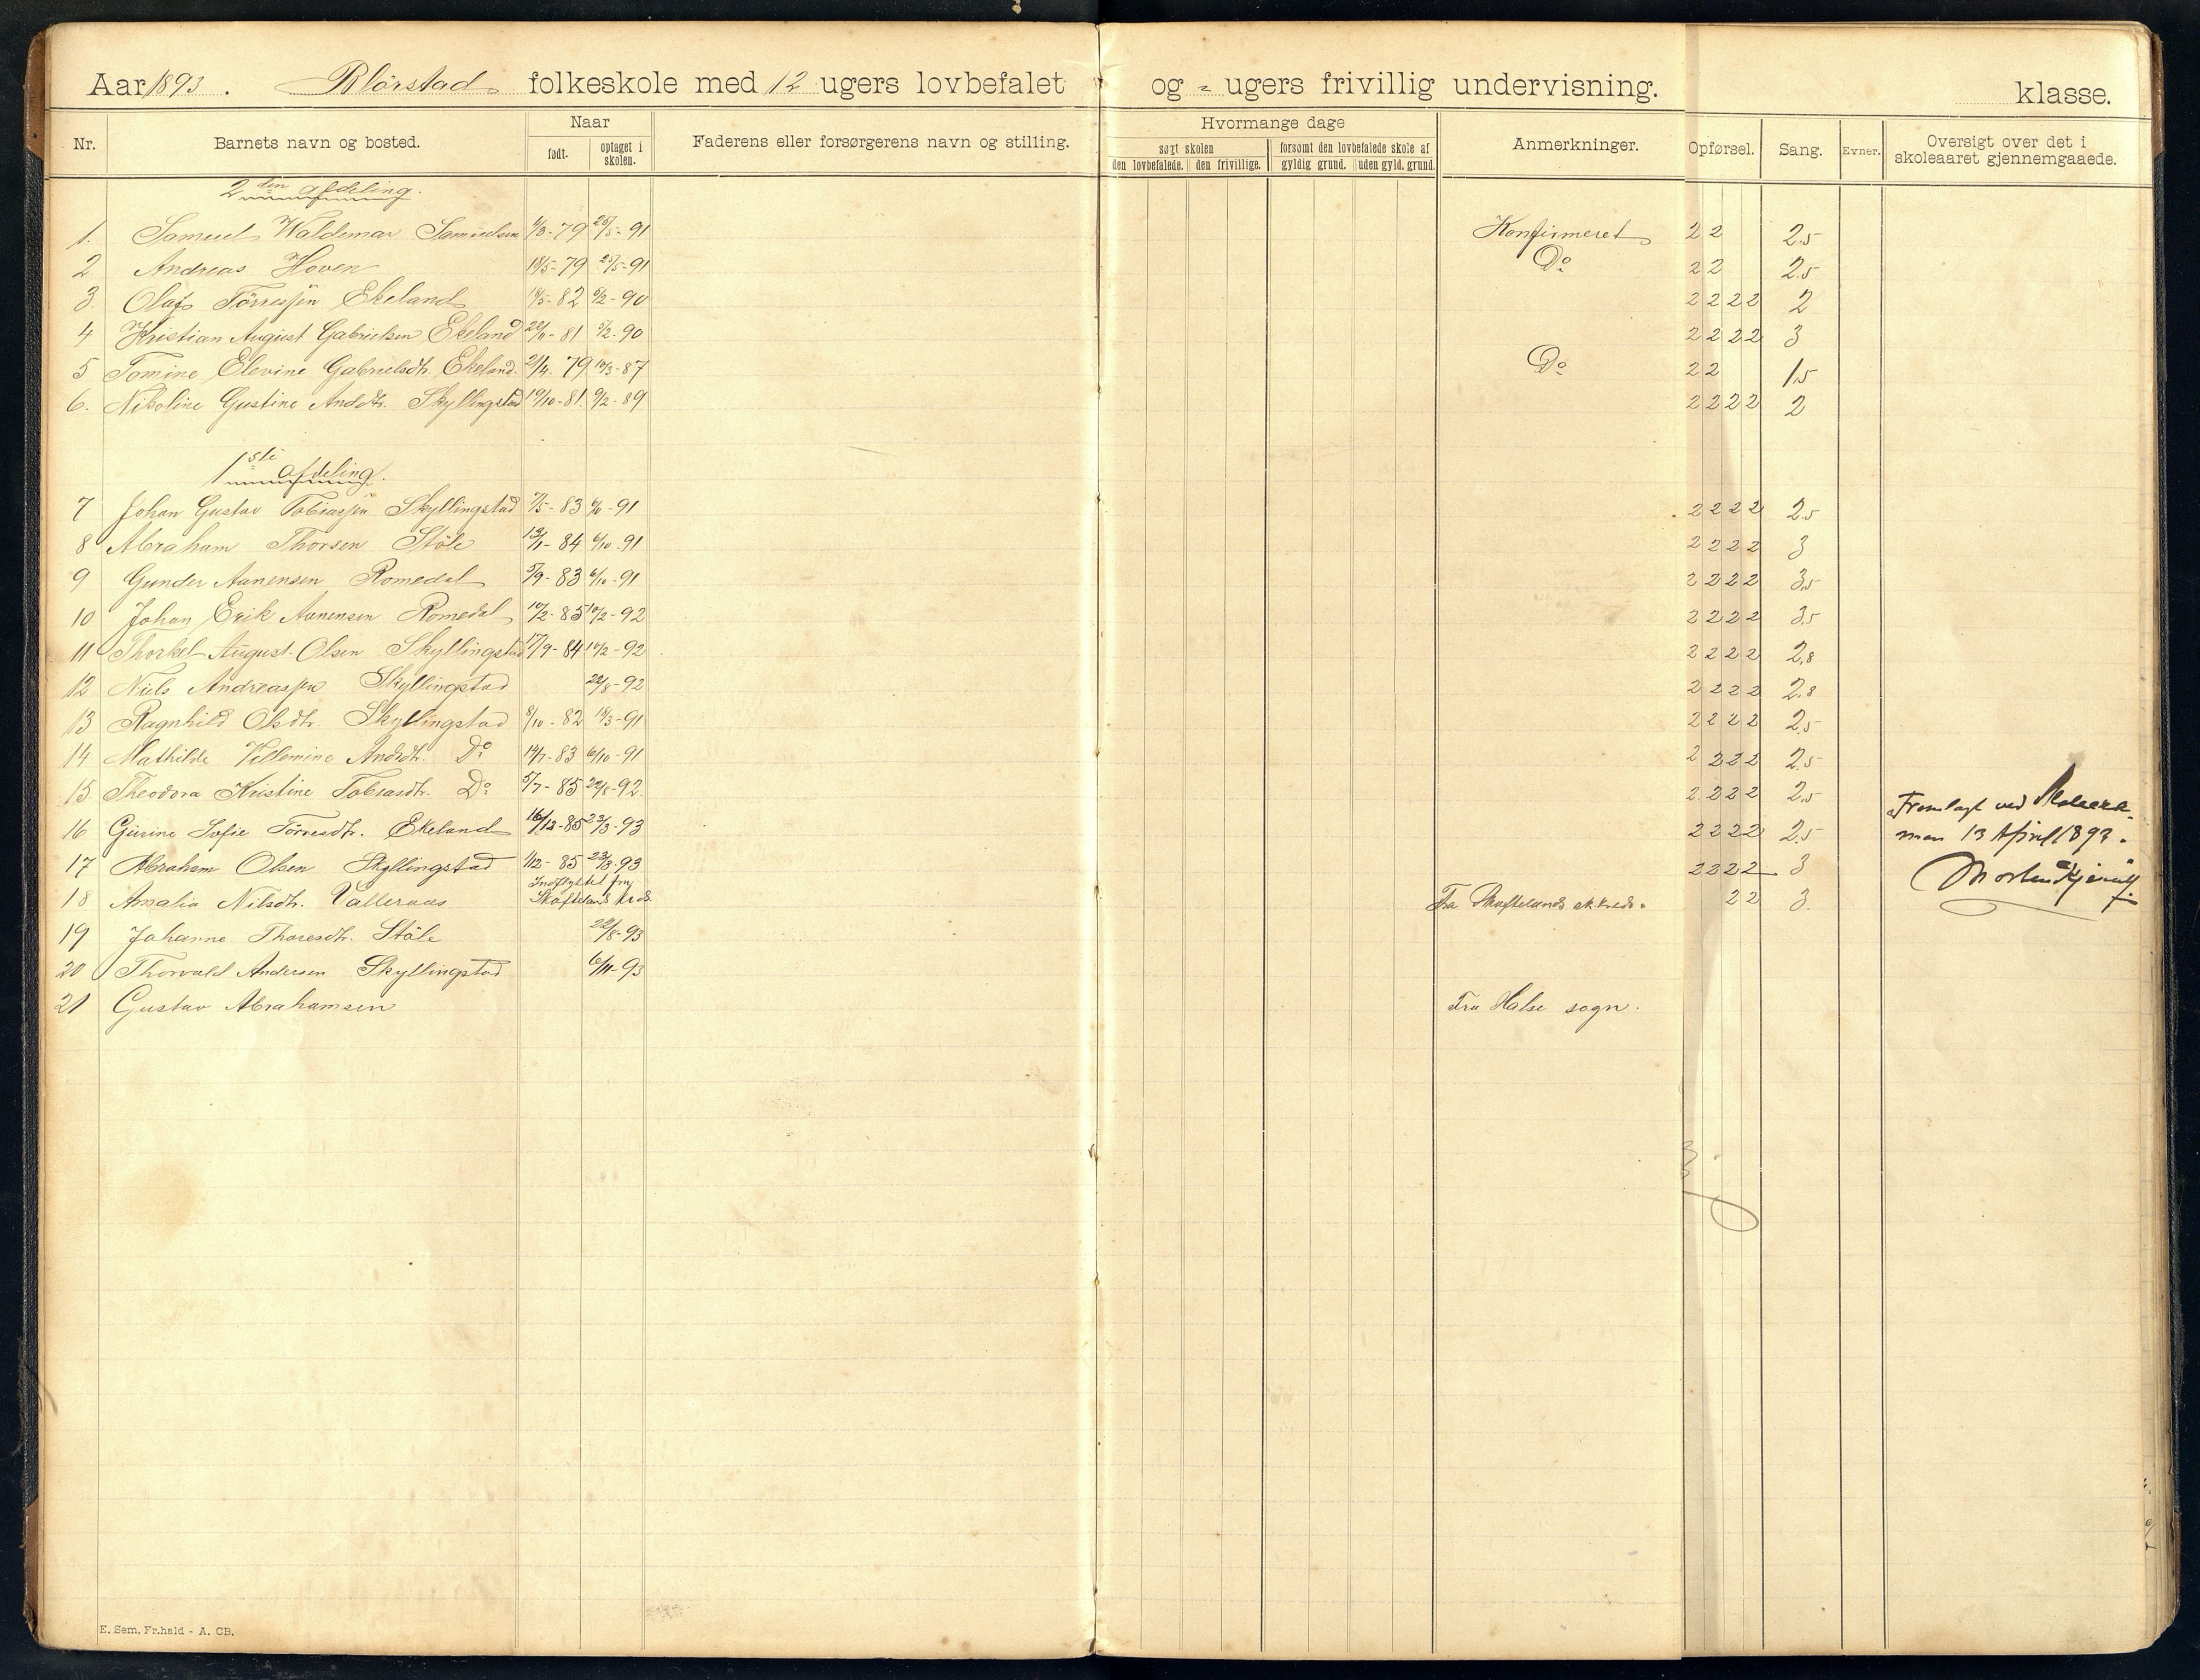 Aar 1893. Blörstad folkeskole med 12 ugers lovbefalet og - ugers frivillig undervisning. klasse.
Nr. Barnets navn og bosted. Naar født. optaget i skolen. Faderens eller forsørgerens navn og stilling. Hvormange dage søgt skolen den lovbefalede. den frivillige. forsømt den lovbefalede skole af gyldig grund. uden gyld. grund. Anmerkninger. Opførsel. Sang. Evner. Oversigt over det i skoleaaret gjennemgaaede.
2den afdeling.
1. Samuel Waldemar Samuelsen 79 25/5-91 Konfirmeret 2 2 2.5
2 Andreas Hoven 18/5-79 25/5-91 Do 2 2 2.5
3. Olaf Törresen Ekeland 82 90 2 2 2 2 2
4 Kristian August Gabrielsen Ekeland 81 5/2-90 2 2 2 2 3
5 Tomine Elevine Gabrielsdtr. Ekeland. 21/4-79 87 Do 2 2 1.5
6. Nikoline Gustine Anddtr. Skyllingstad 19/10-81 9/2-89 2 2 2 2 2
1ste afdeling.
7 Johan Gustav Tobiassen Skyllingstad 7/5-83 91 2 2 2 2 2.5
8 Abraham Thorsen Stöle 84 6/10-91 2 2 2 2 3
9 Gunder Aanensen Romedal 5/9-83 6/10-91 2 2 2 2 3.5
10 Johan Erik Aanensen Romedal 10/2-85 10/2-92 2 2 2 2 3.5
11 Thorkel August Olsen Skyllingstad 17/9-84 10/2-92 2 2 2 2 2.8
12 Niels Andreassen Skyllingstad 22/8-92 2 2 2 2 2.8
13 Ragnhild Olsdtr. Skyllingstad 8/10-82 18/3-91 2 2 2 2 2.5
14 Mathilde Villemine Anddtr. Do 14/7-83 6/10-91 2 2 2 2 2.5
15. Theodora Kristine Tobiasdtr. Do 5/7-85 22/8-92. 2 2 2 2 2.5
16 Gurine Sofie Törresdtr. Ekeland 16/12-85 23/3-93 2 2 2 2 2.5
17 Abraham Olsen Skyllingstad 1/12-85 23/3-93 2 2 2 2 3
18 Amalia Nilsdtr. Valleraas Indflyttet fra Skofteland krds. Fra Skoftelands sk.kreds. 2 2 3.
19 Johanne Thoresdtr. Stöle 22/8-93
20 Thorvald Andersen Skyllingstad 6/11-93
21 Gustav Abrahamsen Fra Halse sogn.
Fremlagt ved Skoleexa-
men 13 April 1893.
E. Sem, Fr.hald - A. CB.